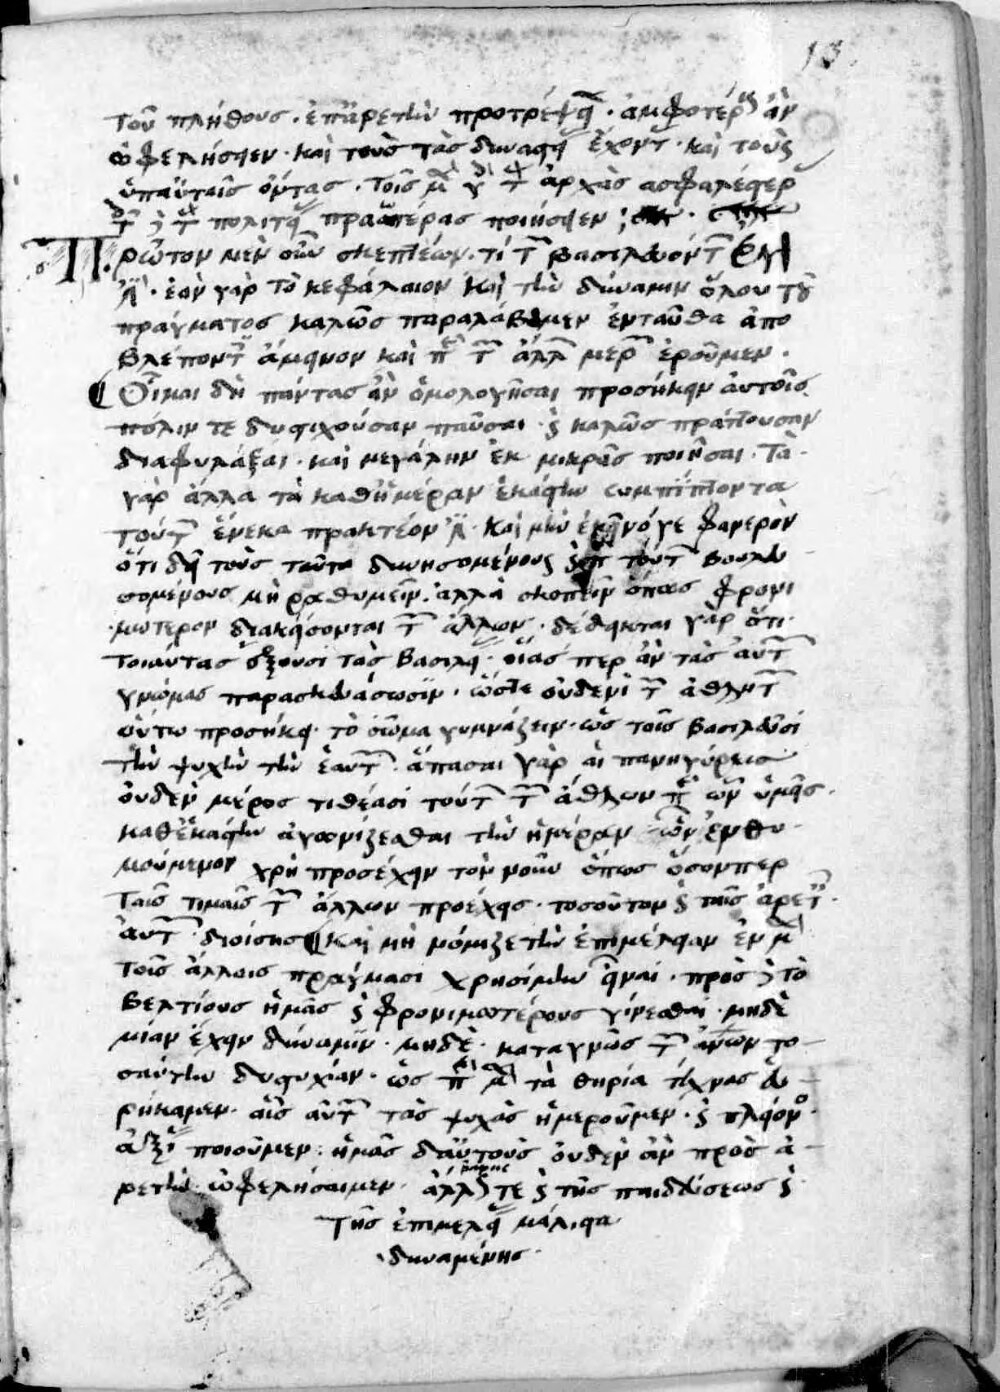 13
τοῦ πλήθους · ἐπ' ἀρετὴν προτρέψει · ἀμφοτέρους ἂν
ὠφελήσειεν · καὶ τοὺς τὰς δυναστείας ἔχοντας · καὶ τοὺς
ὑπ' αὐτοῖς ὄντας · τοῖς μὲν γὰρ τὰς ἀρχὰς ἀσφαλεστέρας
τοῖς δὲ τὰς πολιτείας πραοτέρας ποιήσειεν
Πρῶτον μὲν οὖν σκεπτέων · τί τῶν βασιλευόντων ἔργον
ἐστίν · ἐὰν γὰρ τὸ κεφάλαιον καὶ τὴν δύναμιν ὅλου τοῦ
πράγματος καλῶς παραλάβωμεν ἐνταῦθα ἀπο
βλέποντες ἄμεινον καὶ περὶ τῶν ἄλλων μερῶν ἐροῦμεν ·
Οἶμαι δὴ πάντας ἂν ὁμολογῆσαι προσήκειν αὐτοῖς
πόλιν τε δυστυχοῦσαν παῦσαι · καὶ καλῶς πράττουσαν
διαφυλάξαι · καὶ μεγάλην ἐκ μικρᾶς ποιῆσαι · Τὰ
γὰρ ἄλλα τὰ καθ' ἡμέραν ἑκάστην συμπίπτοντα
τούτων ἕνεκα πρακτέον ἐστί · καὶ μὴν ἐκεῖνό γε φανερὸν
ὅτι δεῖ τοὺς ταῦτα δυνησομένους καὶ περὶ τούτων βουλευ
σομένους μὴ ῥαθυμεῖν · ἀλλὰ σκοπεῖν ὅπως φρονι
μώτερον διακείσονται τῶν ἄλλων · δέδεικται γὰρ ὅτι
τοιαύτας ἕξουσι τὰς βασιλείας · οἵας περ ἂν τὰς αὐτῶν
γνώμας παρασκευάσωσιν · ὥστε οὐδενὶ τῶν ἀθλητῶν
οὕτω προσήκει · τὸ σῶμα γυμνάζειν · ὡς τοῖς βασιλεῦσι
τὴν ψυχὴν τὴν ἑαυτῶν · ἅπασαι γὰρ αἱ πανηγύρεις
οὐδὲν μέρος τιθέασι τούτων τῶν ἄθλων περὶ ὧν ὑμεῖς ·
καθ' ἑκάστην ἀγωνίζεσθαι τὴν ἡμέραν · ὧν ἐνθυ
μούμενον χρὴ προσέχειν τὸν νοῦν ὅπως ὅσονπερ
ταῖς τιμαῖς τῶν ἄλλων προέχεις · τοσοῦτον καὶ ταῖς ἀρεταῖς ·
αὐτῶν διοίσεις · Καὶ μὴ νόμιζε τὴν ἐπιμέλειαν ἐν μὲν
τοῖς ἄλλοις πράγμασι χρησίμην εἶναι · πρὸς δὲ τὸ
βελτίους ἡμᾶς καὶ φρονιμωτέρους γίνεσθαι · μηδε
μίαν ἔχειν δύναμιν · μηδὲ · καταγνῷς τῶν ἀνθρώπων το
σαύτην δυστυχίαν · ὡς περὶ μὲν τὰ θηρία τέχνας εὑ
ρήκαμεν · αἷς αὐτῶν τὰς ψυχὰς ἡμεροῦμεν · καὶ πλείονος
ἀξίας ποιοῦμεν : ἡμᾶς δ' αὐτοὺς οὐδὲν ἂν πρὸς ἀ
ρετὴν · ὠφελήσαιμεν · ἀλλ' ὡς τε καὶ τῆς παιδεύσεως καὶ
τῆς ἐπιμελείας μάλιστα
δυναμένης ·